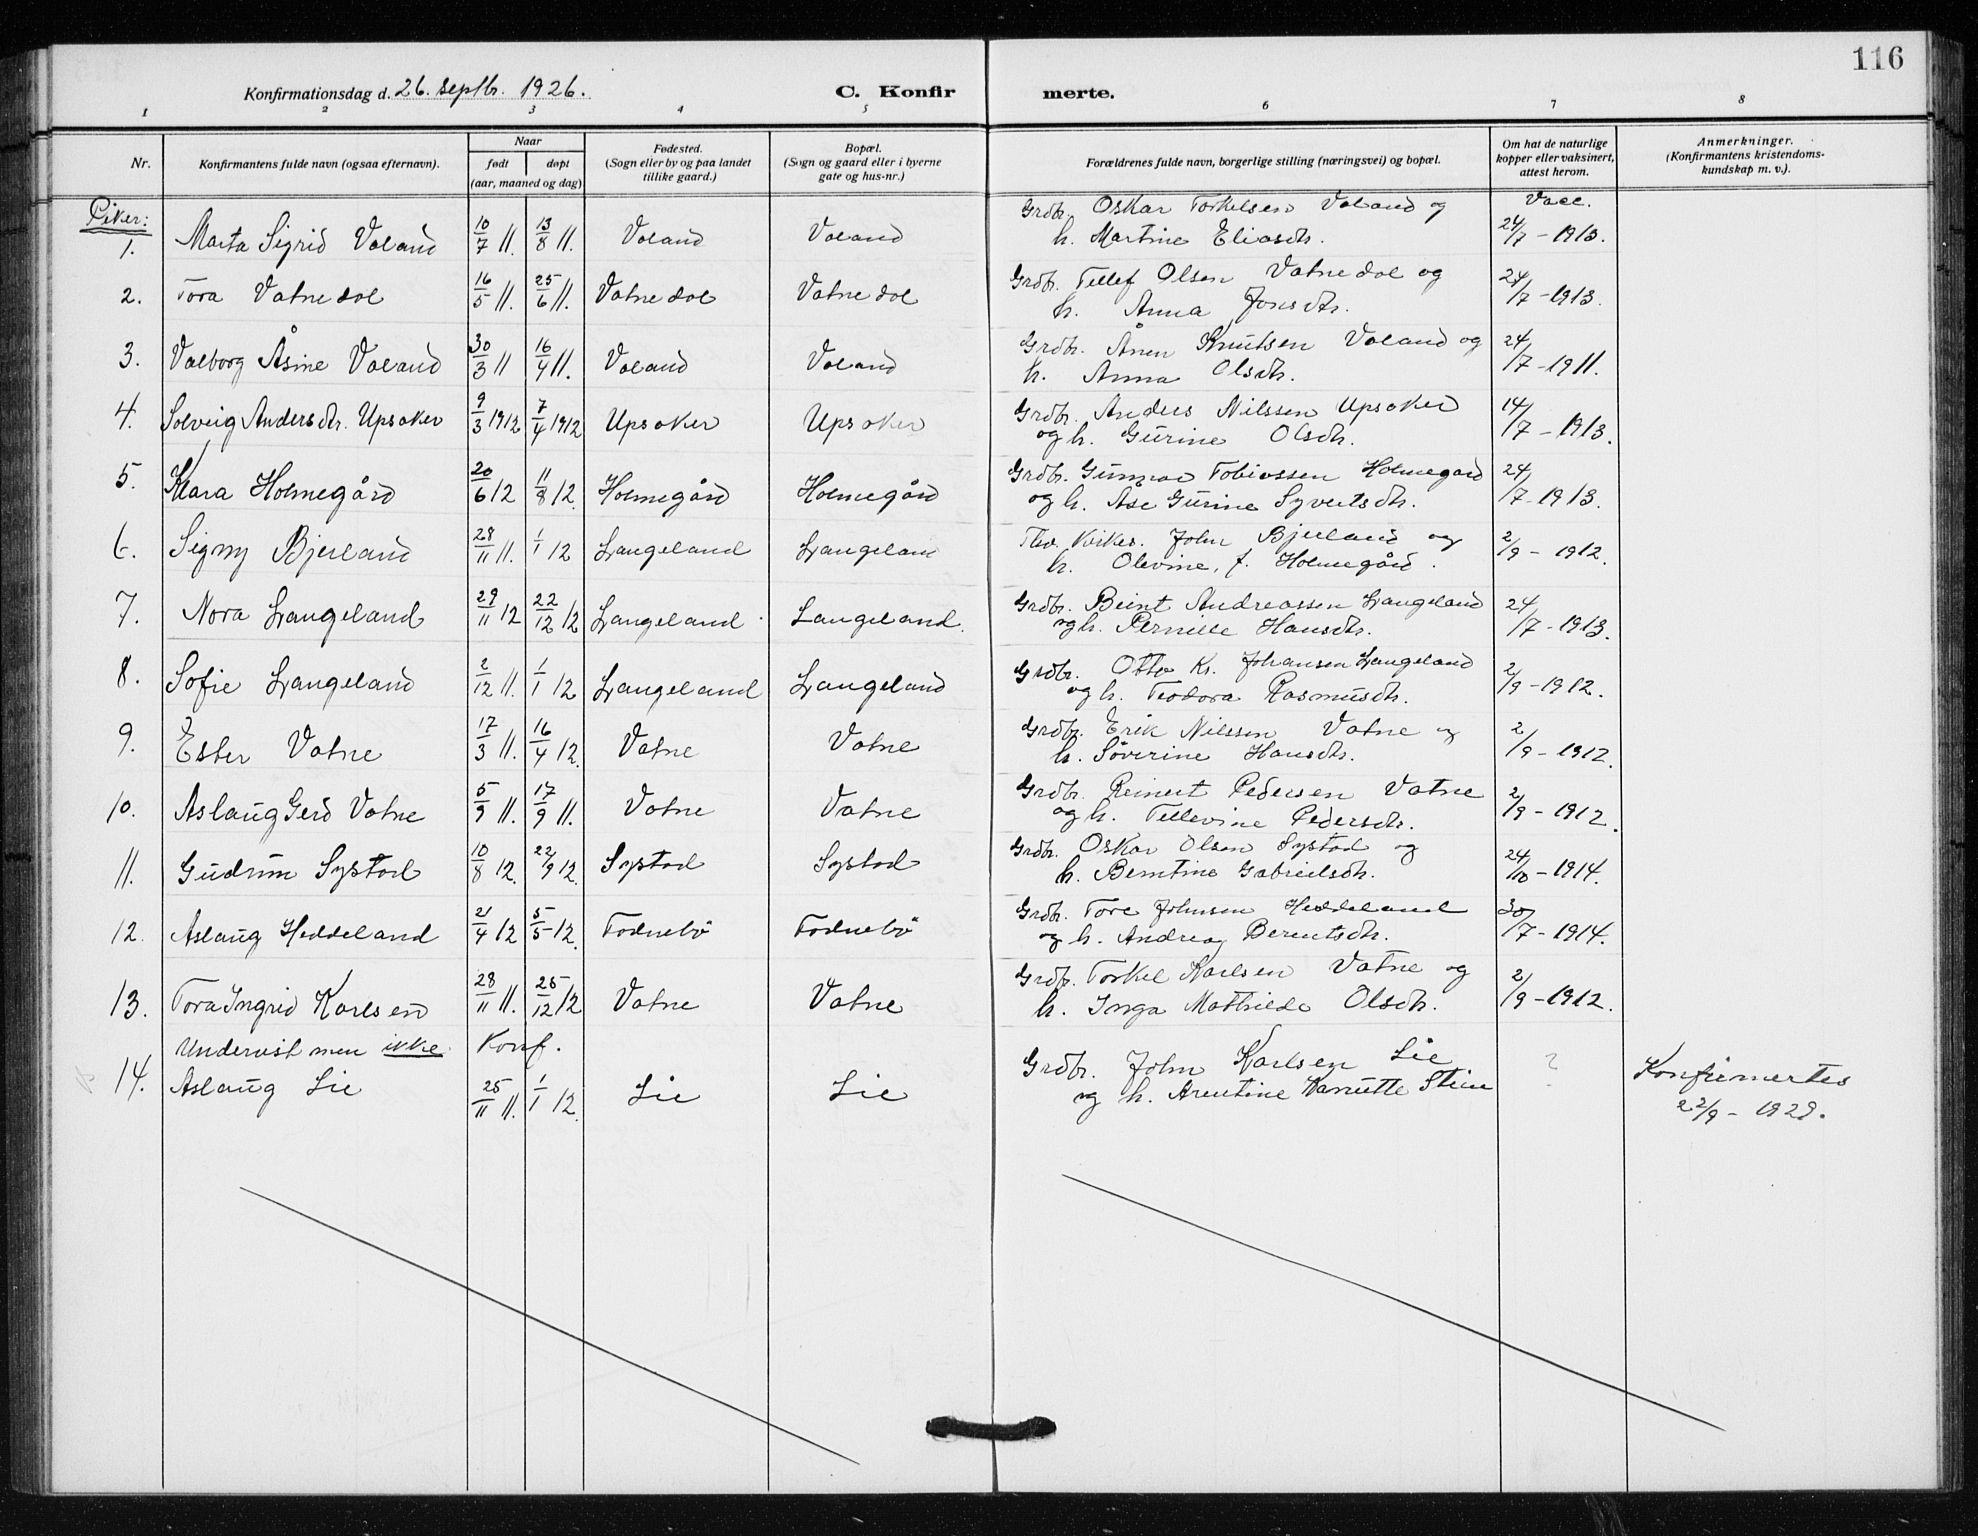 116
Konfirmationsdag d. 26. septbr. 1926.
C. Konfirmerte.
1 2 3 4 5 6 7 8
Nr.
Konfirmantens fulde navn (ogsaa efternavn).
Naar
født døpt
(aar, maaned og dag)
Fødested.
(Sogn eller by og paa landet
tillike gaard.)
Bopæl.
(Sogn og gaard eller i byerne
gate og hus-nr.)
Forældrenes fulde navn, borgerlige stilling (næringsvei) og bopæl.
Om hat de naturlige
kopper eller vaksinert,
attest herom.
Anmerkninger.
(Konfirmantens kristendoms-
kundskap m. v.).
Piker:
1. Marta Sigrid Voland 10/7 11. 13/8 11. Voland Voland Grdbr. Oskar Torkelsen Voland og Vacc.
h. Martine Eliasdtr. 24/7 - 1913.
2. Tora Vatnedal 16/5 11. 25/6 11. Vatnedal Vatnedal Grdbr. Tellef Olsen Vatnedal og 24/7 - 1913.
h. Anna Jonsdtr.
3. Valborg Åsine Voland 30/3 11 16/4 11. Voland Voland Grdbr. Ånen Knutsen Voland og 24/7 - 1911.
h. Anna Olsdtr.
4. Solveig Andersdtr. Upsaker 9/3 1912 7/4 1912 Upsaker Upsaker Grdbr. Anders Nilssen Upsaker 14/7 - 1913.
og h. Gurine Olsdtr.
5. Klara Holmegård 20/6 12 11/8 12. Holmegård Holmegård Grdbr. Gunnar Tobiassen Holmegard 24/7 - 1913.
og h. Ase Gurine Syvertsdtr.
6. Signy Bjerland 28/11 11. 1/1 12 Langeland Langeland John Bjerland og 2/9 - 1912.
h. Olevine, f. Holmegård.
7. Nora Langeland 29/11 12 22/12 12 Langeland Langeland. Grdbr. Beint Andreassen Langeland 24/7 - 1913.
og h. Pernille Hansdtr.
8. Sofie Langeland 2/12 11. 1/1 12 Langeland Langeland Grdbr. Otto Kr. Johansen Langeland 2/9 - 1912.
og h. Teodora Rasmusdtr.
9. Ester Vatne 17/3 11. 16/4 12. Vatne Vatne Grdbr. Erik Nilssen Vatne og 2/9 - 1912.
h. Söverine Hansdtr.
10. Aslaug Gerd Vatne 5/9 11. 17/9 11. Vatne Vatne Grdbr. Reinert Pedersen Vatne 2/9 - 1912.
og h. Tellevine Pedersdtr.
11. Gudrun Systad 10/8 12. 22/9 12. Systad Systad Grdbr. Oskar Olsen Systad og 24/10 - 1914.
h. Berntine Gabrielsdtr.
12. Aslaug Heddeland 21/4 12 5/5 12. Fodnebö Fodnebö Grdbr. Tore Johnsen Heddeland 30/7 - 1914.
og h. Andrea Berentsdtr.
13. Tora Ingrid Karlsen 28/11 11. 25/12 12 Vatne Vatne Grdbr. Torkel Karlsen Vatne og 2/9 - 1912.
h. Inga Mathilde Olsdtr.
Undervist men ikke Konf.
14. Aslaug Lie 25/11 11. 1/1 12. Lie Lie Grdbr. John Karlsen Lie ? Konfirmertes
og h. Arentine 22/9 - 1929.